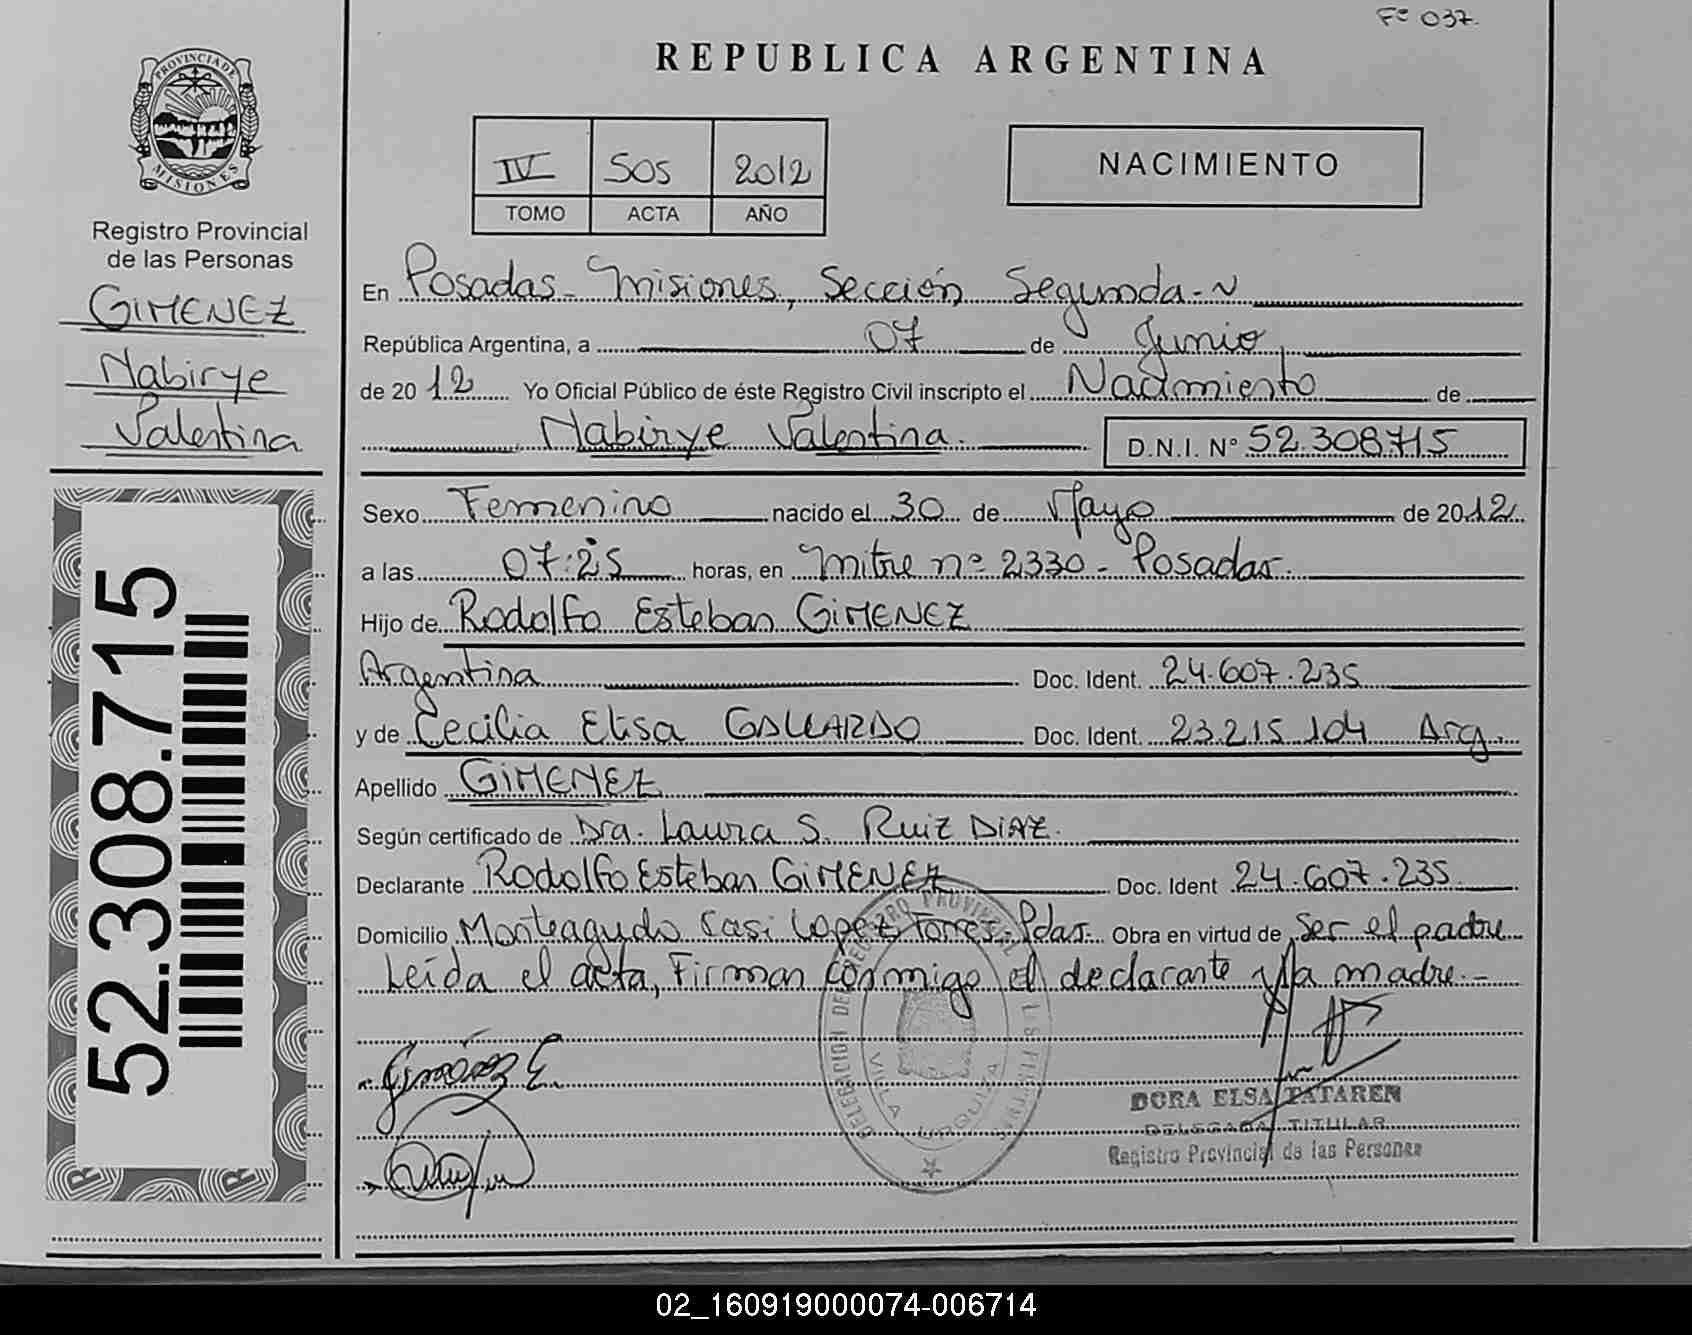 Fº 037.
REPUBLICA ARGENTINA
PROVINCIA DE
MISIONES
IV 505 2012
TOMO ACTA AÑO
NACIMIENTO
Registro Provincial
de las Personas
GIMENEZ
Nabirye
Valentina
En Posadas - Misiones, Sección Segunda.-
República Argentina, a 07 de Junio
de 2012 Yo Oficial Público de éste Registro Civil inscripto el Nacimiento de
Nabirye Valentina. D.N.I. Nº 52.308715
Sexo Femenino nacido el 30 de Mayo de 2012
a las 07:25 horas, en Mitre nº 2330 - Posadas.
Hijo de Rodolfo Esteban GIMENEZ
Argentina Doc. Ident. 24.607.235
y de Cecilia Elisa GALLARDO Doc. Ident. 23.215.104 Arg.
Apellido GIMENEZ
Según certificado de Dra. Laura S. RUIZ DIAZ.
Declarante Rodolfo Esteban GIMENEZ Doc. Ident 24.607.235
Domicilio Monteagudo casi Lopez Torres - Pdas. Obra en virtud de ser el padre
Leída el acta, Firman conmigo el declarante y la madre.-
52.308.715
Gimenez E.
VILLA URQUIZA
DORA ELSA TATAREN
DELEGADA TITULAR
Registro Provincial de las Personas
02_160919000074-006714